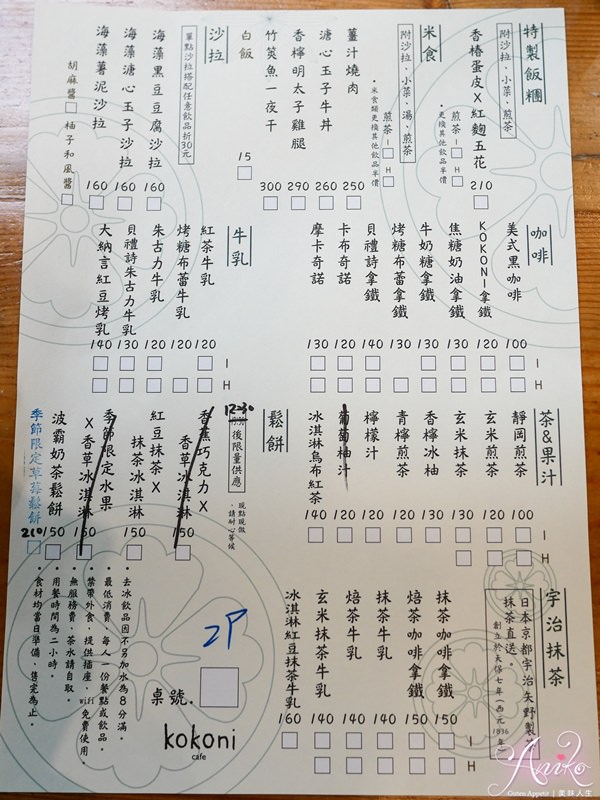 特製飯糰
附沙拉、小菜、煎茶
香椿蛋皮X紅麴五花 210
煎茶-□I □H
・更換其他飲品半價
米食
附沙拉、小菜、湯、煎茶
煎茶-□I □H
・米食類更換其他飲品半價
薑汁燒肉 250
溏心玉子牛丼 260
香檸明太子雞腿 290
竹筴魚一夜干 300
白飯 15
沙拉
單點沙拉搭配任意飲品折30元
海藻黑豆豆腐沙拉 160
海藻溏心玉子沙拉 160
海藻薯泥沙拉 160
胡麻醬□ 柚子和風醬□
咖啡
I
H
美式黑咖啡 100
KOKONI拿鐵 120
焦糖奶油拿鐵 130
牛奶糖拿鐵 130
烤糖布蕾拿鐵 130
貝禮詩拿鐵 140
卡布奇諾 120
摩卡奇諾 130
牛乳
I
H
紅茶牛乳 120
烤糖布蕾牛乳 120
朱古力牛乳 120
貝禮詩朱古力牛乳 130
大納言紅豆烤乳 140
茶&果汁
I
H
靜岡煎茶 100
玄米煎茶 120
玄米抹茶 130
香檸冰柚 130
青檸煎茶 120
檸檬汁 120
葡萄柚汁 120
冰淇淋烏布紅茶 140
鬆餅
12:30
後限量供應
現點現做、請耐心等候
香蕉巧克力X
香草冰淇淋 150
紅豆抹茶X
抹茶冰淇淋 150
季節限定水果
X香草冰淇淋 160
波霸奶茶鬆餅 150
季節限定草莓鬆餅 210
宇治抹茶
日本京都宇治矢野製
抹茶直送。
創立於天保七年(西元1836年)
I
H
抹茶咖啡拿鐵 150
焙茶咖啡拿鐵 150
抹茶牛乳 140
焙茶牛乳 140
玄米抹茶牛乳 140
冰淇淋紅豆抹茶牛乳 160
2P
桌號.
kokoni
cafe
・去冰飲品因不另加水為8分滿。
・最低消費、每人一份餐點或飲品。
・禁帶外食、提供插座、wifi免費使用。
・無服務費、茶水請自取。
・用餐時間為二小時。
・食材均當日準備、售完為止。
Aniko
Outre Appetit | 美味人生